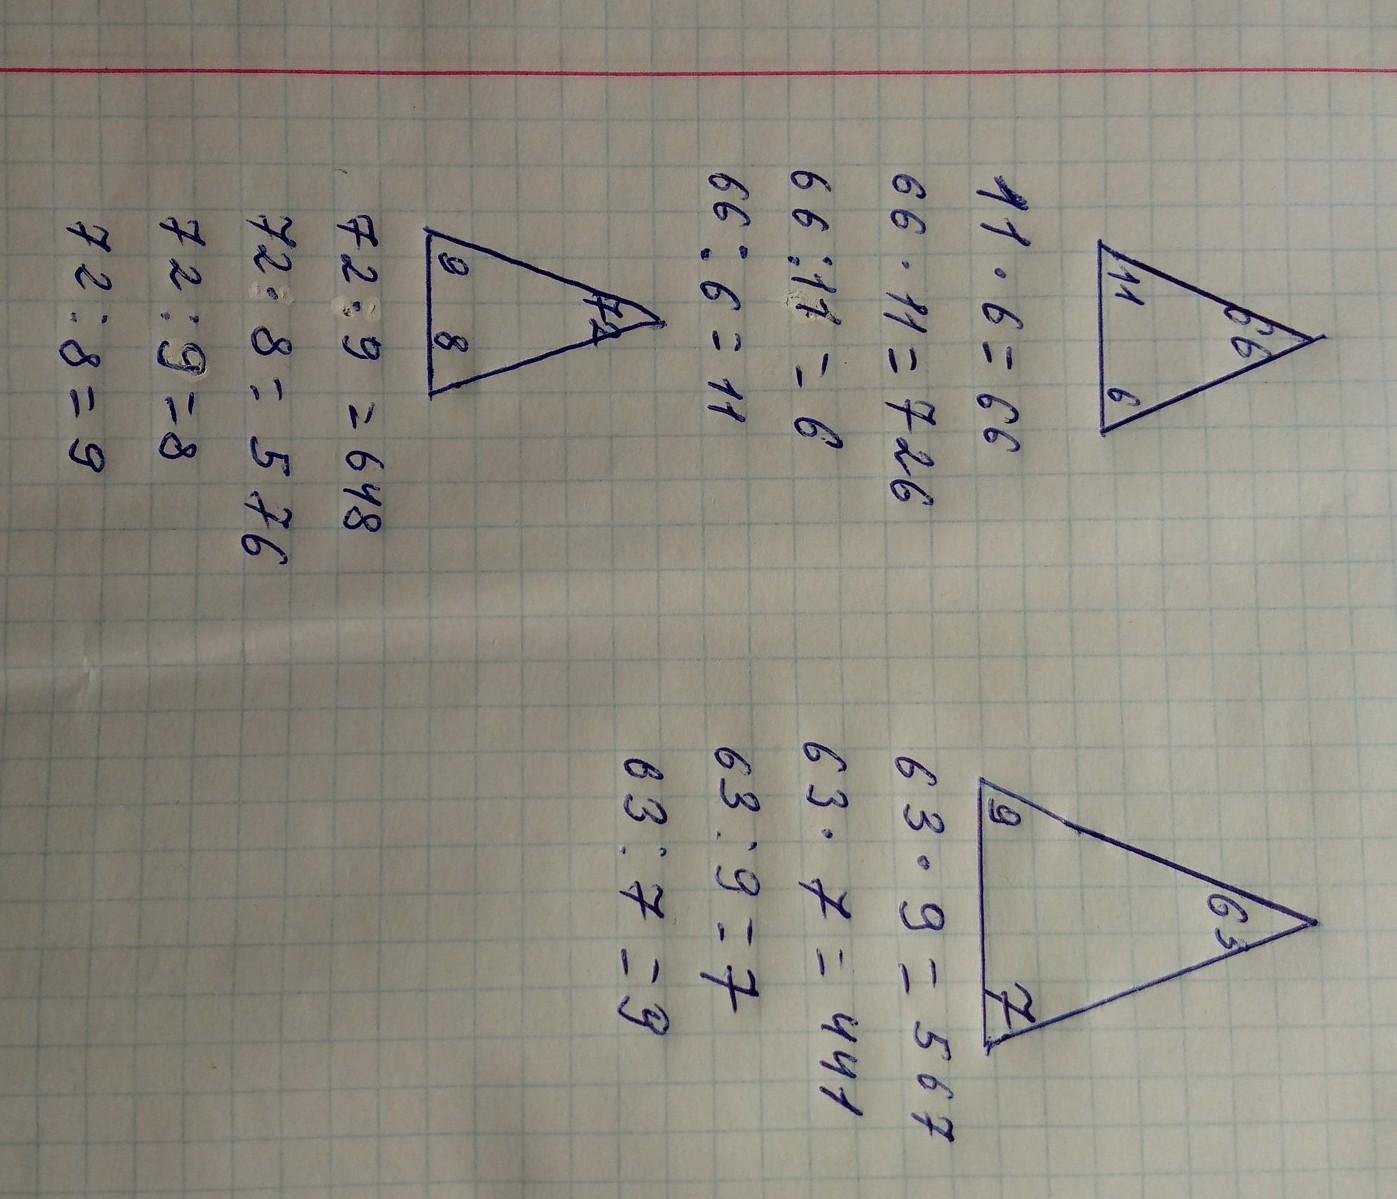 66
11 6
11 · 6 = 66
66 · 11 = 726
66 : 11 = 6
66 : 6 = 11
72
9 8
72 · 9 = 648
72 · 8 = 576
72 : 9 = 8
72 : 8 = 9
63
9 7
63 · 9 = 567
63 · 7 = 441
63 : 9 = 7
63 : 7 = 9